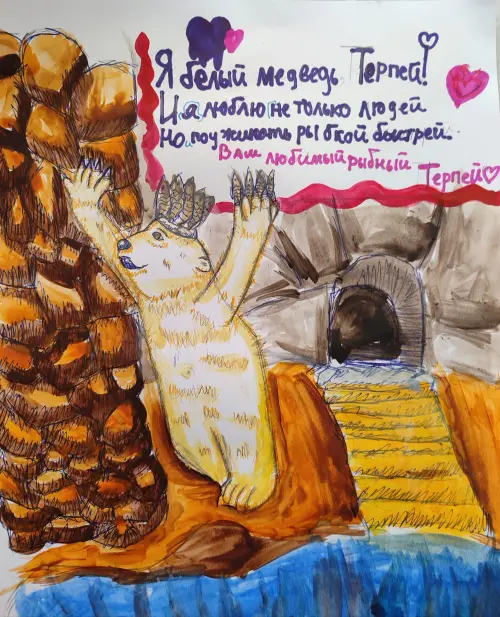 Я белый медведь Терпей!
И я люблю не только людей
Но, поужинать рыбкой быстрей.
Ваш любимый рыбный
Терпей